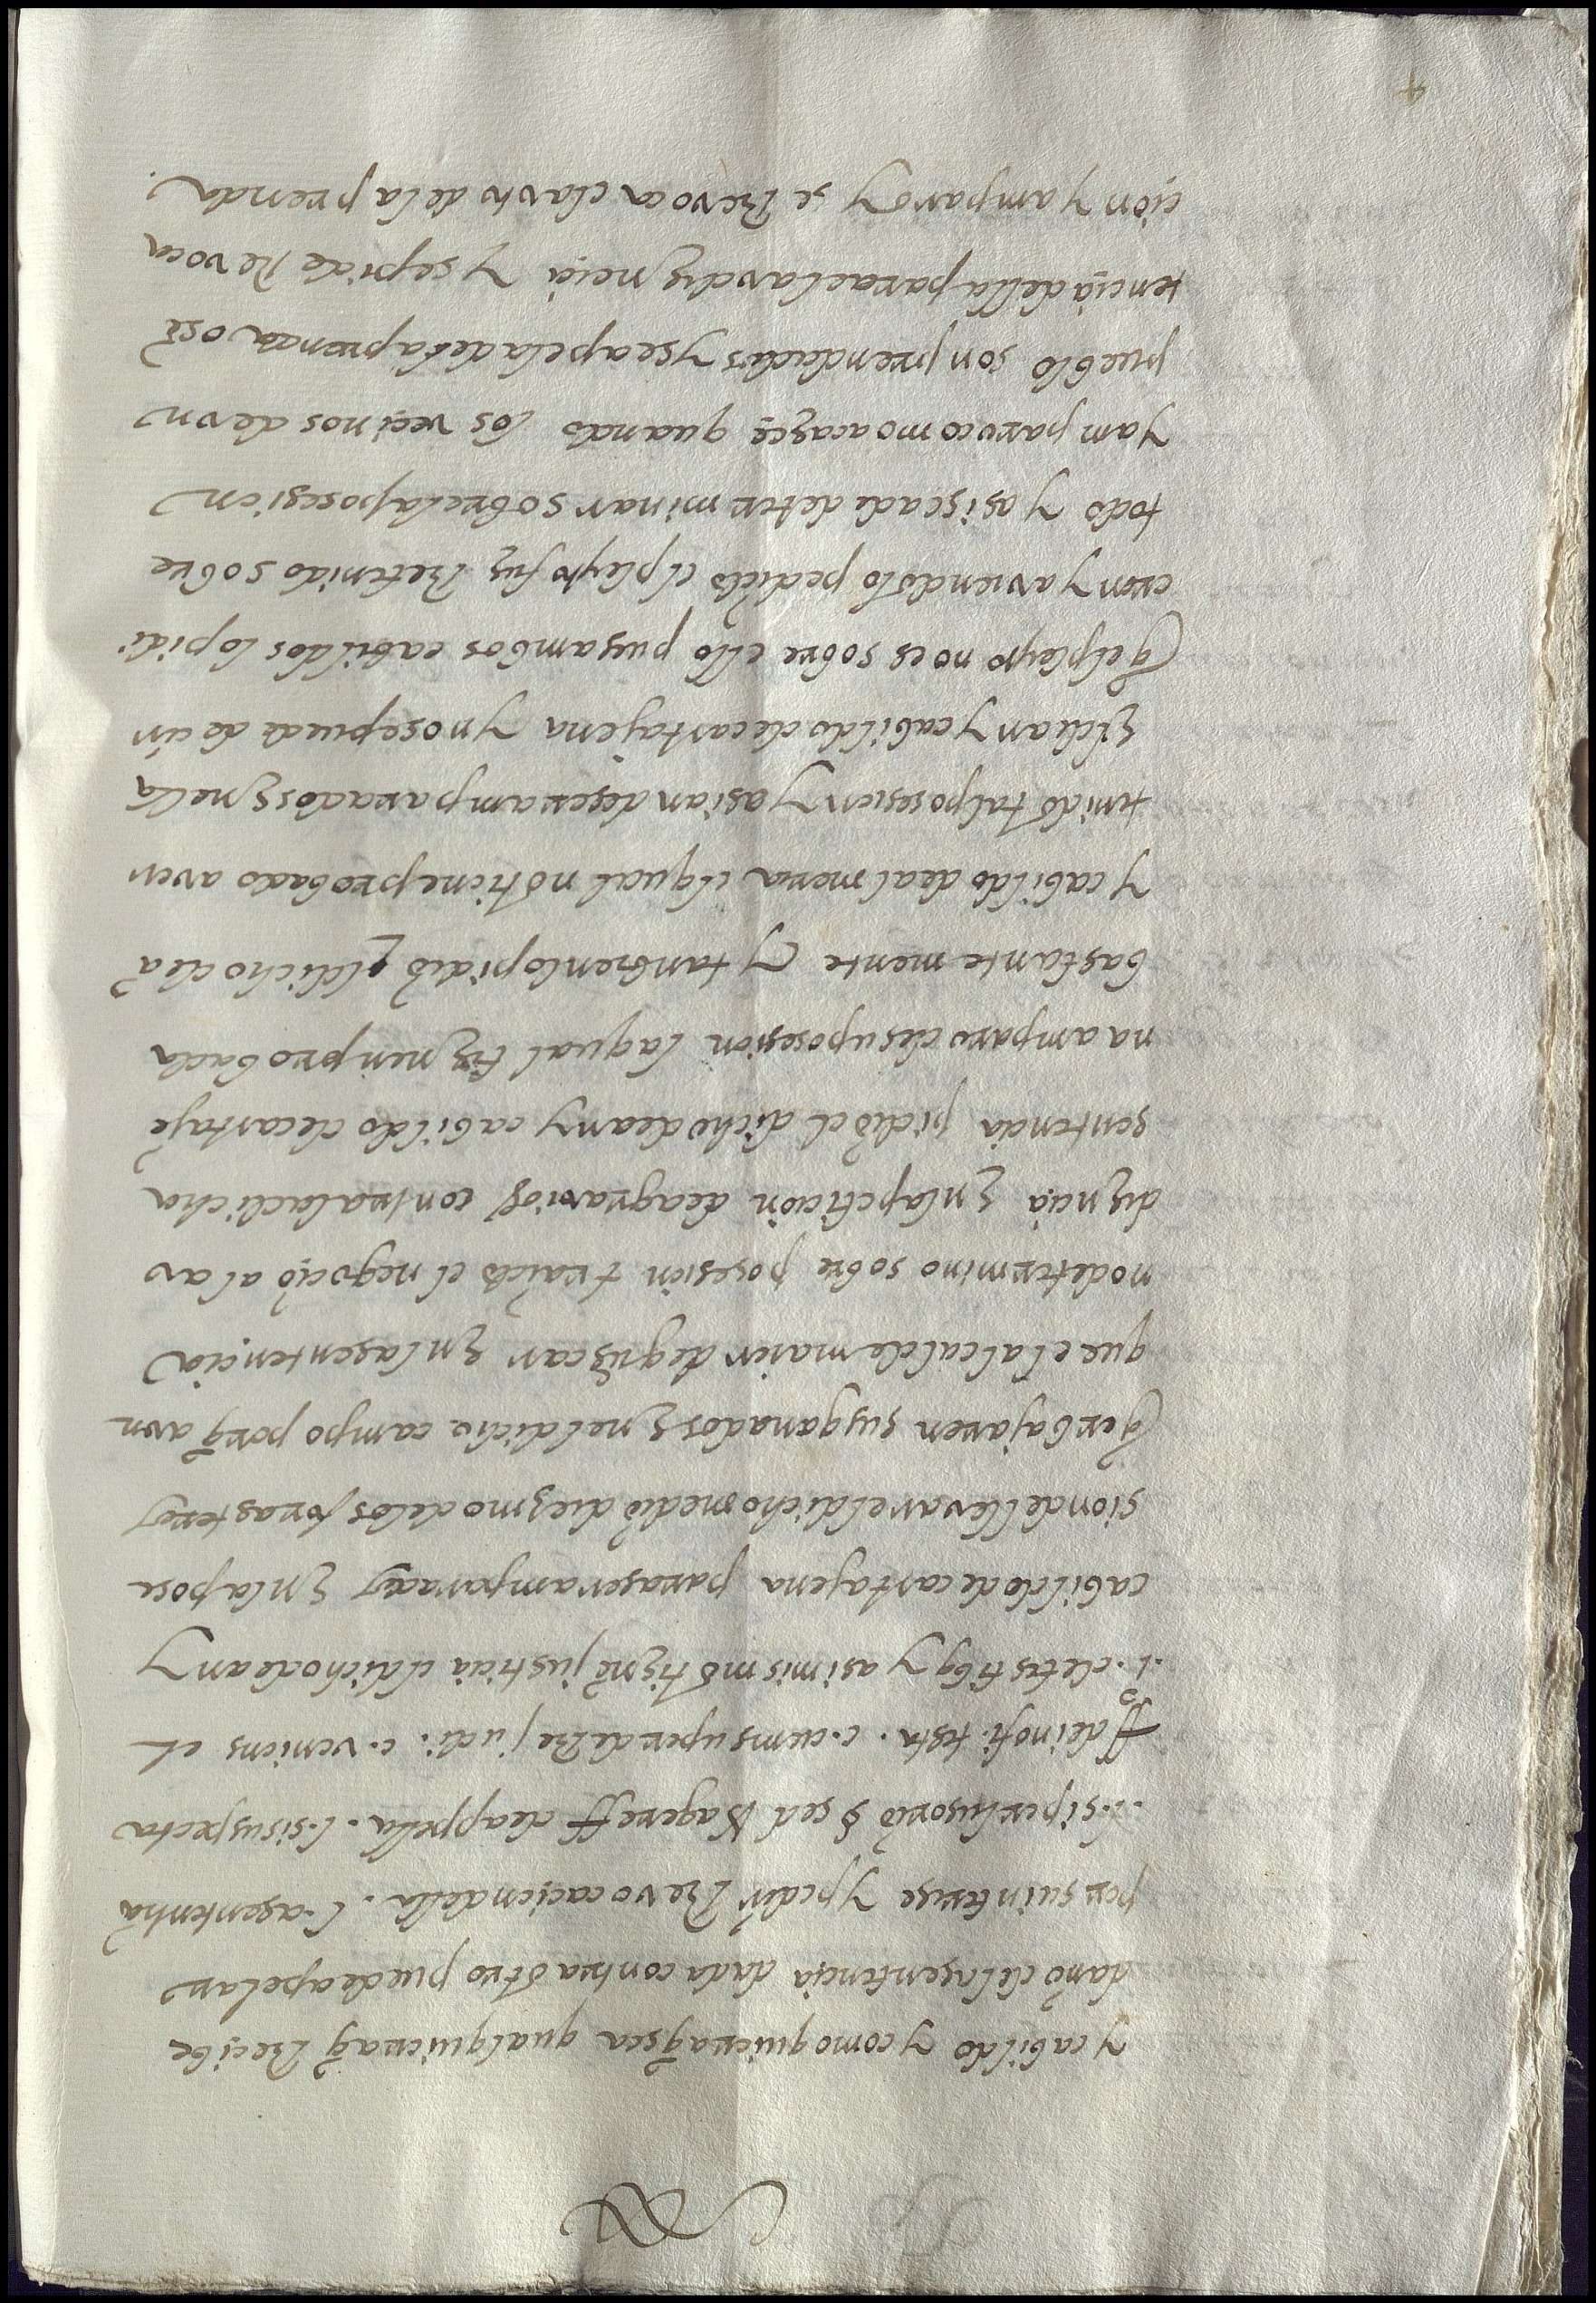 y cabildo y como quiera q̃ sea qualquiera q̃ Recibe
daño de la sentencia dada contra otro puede apelar
por su interese y pedir Revocacion della . l. a sententia
. l. si perlusorio § sed s agere ff de appella . l. si suspecta
ff de inofi. testa . c. cum super de Re judi . c. veniens el
.i. de testibꝯ y asimismo tiene justicia el dicho dean y
cabildo de cartajena para ser amparados en la pose
sion de llevar el dicho medio diezmo de los forasteros
q̃ erbajaren sus ganados en el dicho campo porq̃ aun
que el alcalde maior de guescar en la sentencia
no determino sobre posesion traido el negocio al au
diencia en la peticion de agravios contra la dicha
sentencia pidio el dicho dean y cabildo de cartaje
na amparo de su posesion la qual tienen probada
bastantemente y tanbien lo pidio el dicho deã
y cabildo de almeria el qual no tiene probado aver
tenido tal posesion y asi an de ser amparados en ella
el dean y cabildo de cartajena y no se puede decir
q̃ el pleyto no es sobre ello pues ambos cabildos lo pidi
eron y aviendolo pedido el pleyto fue Retenido sobre
todo y asi se a de determinar sobre la posesion
y amparo como acaece quando los vecinos de un
pueblo son prendados y se apela de la prenda o sẽ
tencia della para el audiencia y se pide Revoca
cion y amparo y se Revoca el auto de la prenda .